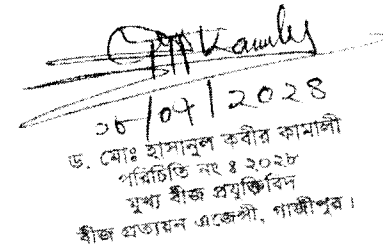 ২৮/০৭/২০২৪
ড. মোঃ হাসানুল কবীর কামালী
পরিচিতি নং ঃ ২০২৮
মুখ্য বীজ প্রযুক্তিবিদ
বীজ প্রত্যয়ন এজেন্সী, গাজীপুর।